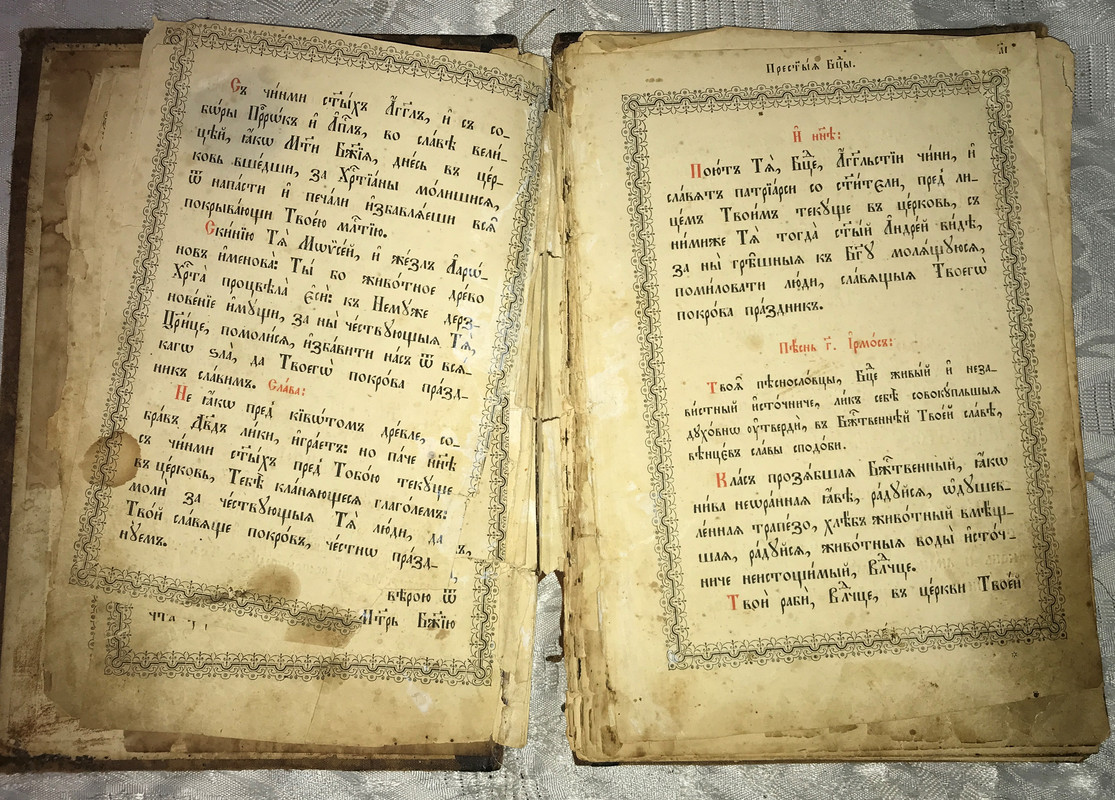 Съ чи́нми ст҃ы́хъ А҆́гг҃лъ, и҆ съ со-
бѡ́ры Прⷪ҇рѡ́къ и҆ А҆пⷭ҇лъ, во сла́вѣ вели́-
цѣй, ꙗ҆́кѡ Мт҃и Бж҃їѧ, дне́сь въ це́р-
ковь вше́дши, за Хрⷭ҇тїа́ны мо́лишисѧ,
ѿ напа́сти и҆ печа́ли и҆збавлѧ́еши всѧ̑
покрыва́ющи Твое́ю млⷭ҇тїю.
Ски́нїю Тѧ̀ Мѡѷсе́й, и҆ же́злъ А҆арѡ́-
новъ и҆менова̀: Ты́ бо живо́тное дре́во
Хрⷭ҇та̀ процвѣла̀ є҆сѝ: къ Немꙋ́же дерз-
нове́нїе и҆мꙋ́щи, за ны̀ че́ствꙋющыѧ Тѧ̀,
Цр҃и́це, помоли́сѧ, и҆зба́вити на́съ ѿ всѧ́-
кагѡ ѕла̀, да Твоегѡ̀ покро́ва пра́зд-
никъ сла́вимъ. Сла́ва:
Не ꙗ҆́кѡ пред̾ кївѡ́томъ дре́вле, со-
бра́въ Дв҃дъ ли́ки, и҆гра́етъ: но па́че нн҃ѣ
съ чи́нми ст҃ы́хъ пред̾ Тобо́ю текꙋ́ще
въ це́рковь, Тебѣ̀ кла́нѧющесѧ глаго́лемъ:
молѝ за че́ствꙋющыѧ Тѧ̀ лю́ди, да
Тво́й сла́вѧще покро́въ, че́стнѡ пра́зд-
нꙋемъ.
вѣ́рою ѿ
Мт҃рь Бж҃їю
Прест҃ы́ѧ Бцⷣы.
И҆ нн҃ѣ:
Пою́тъ Тѧ̀, Бцⷣе, А҆́гг҃льстїи чи́ни, и҆
сла́вѧтъ патрїа́рси со ст҃и́тєли, пред̾ ли-
це́мъ Твои́мъ текꙋ́ще въ це́рковь, съ
ни́миже Тѧ̀ тогда̀ ст҃ы́й А҆ндре́й ви́дѣ,
за ны̀ грѣ̑шныѧ къ Бг҃ꙋ молѧ́щꙋюсѧ,
поми́ловати лю́ди, сла́вѧщыѧ Твоегѡ̀
покро́ва пра́здникъ.
Пѣ́снь г҃. І҆рмо́съ:
Твоѧ̑ пѣсносло́вцы, Бцⷣе живы́й и҆ неза-
ви́стный и҆сто́чниче, ли́къ себѣ̀ совокꙋ́пльшыѧ
дꙋхо́внѡ ᲂу҆твердѝ, въ Бж҃е́ственнѣй Твое́й сла́вѣ,
вѣнцє́въ сла́вы сподо́би.
Кла́съ прозѧ́бшаѧ Бж҃е́ственный, ꙗ҆́кѡ
ни́ва неѡ́раннаѧ ꙗ҆́вѣ, ра́дꙋйсѧ, ѡ҆дꙋшев-
ле́ннаѧ трапе́зо, хлѣ́бъ живо́тный вмѣ́щ-
шаѧ, ра́дꙋйсѧ, живо́тныѧ воды̀ и҆сто́ч-
ниче неистощи́мый, Влⷣчце.
Твоѝ рабѝ, Влⷣчце, въ це́ркви Твое́й